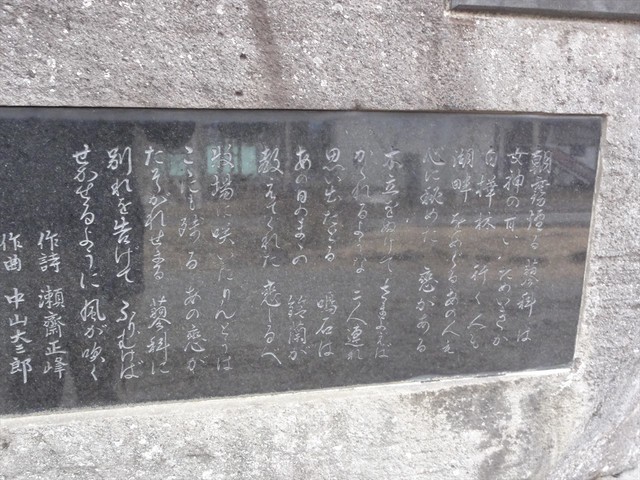 朝霧煙る 蓼科は
女神の百い ためいきか
白樺林 行く人も
湖畔をめぐる あの人も
心に秘めた 恋がある
木立をぬけて さまよえば
かくれるような 二人連れ
思い出たどる 鳴石は
あの日のまゝの 鈴蘭が
教えてくれた 恋しるべ
牧場に咲いた りんどうは
ここにも残る あの恋が
たそがれせまる 蓼科に
別れを告げて ふりむけば
せかせるように 風が吹く
作詩 瀬齋正峰
作曲 中山大三郎